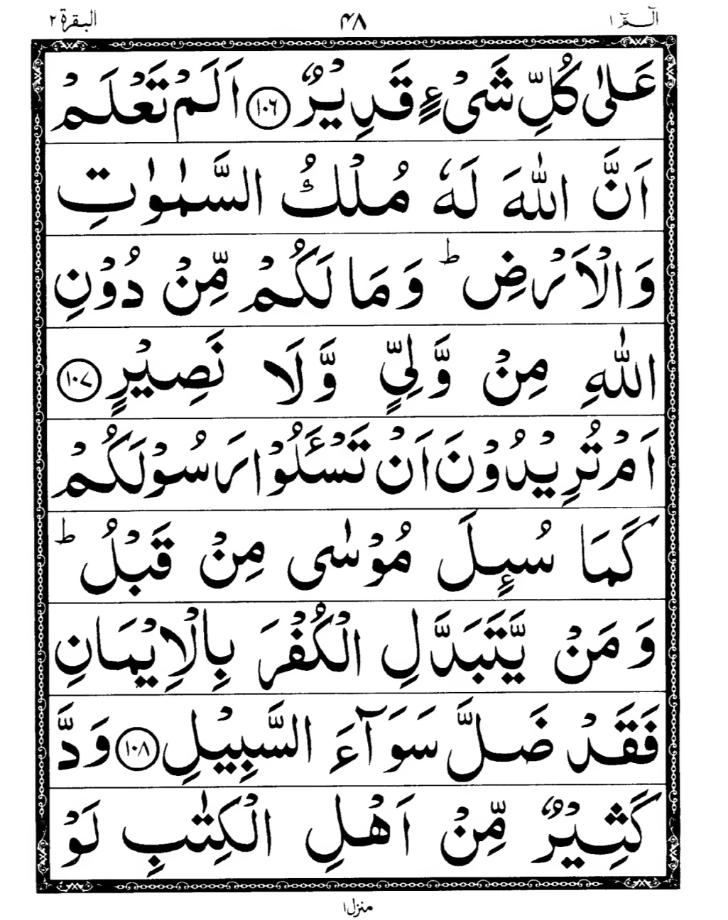 الٓـمّٓ ١ ٤٨ البقرة ٢
عَلٰى كُلِّ شَىْءٍ قَدِيْرٌ ﴿١٠٦﴾ اَلَمْ تَعْلَمْ
اَنَّ اللّٰهَ لَهٗ مُلْكُ السَّمٰوٰتِ
وَالْاَرْضِ ؕ وَمَا لَكُمْ مِّنْ دُوْنِ
اللّٰهِ مِنْ وَّلِىٍّ وَّلَا نَصِيْرٍ ﴿١٠٧﴾
اَمْ تُرِيْدُوْنَ اَنْ تَسْـَٔلُوْا رَسُوْلَكُمْ
كَمَا سُىِٕلَ مُوْسٰى مِنْ قَبْلُ ؕ
وَمَنْ يَّتَبَدَّلِ الْكُفْرَ بِالْاِيْمَانِ
فَقَدْ ضَلَّ سَوَآءَ السَّبِيْلِ ﴿١٠٨﴾ وَدَّ
كَثِيْرٌ مِّنْ اَهْلِ الْكِتٰبِ لَوْ
منزل ١